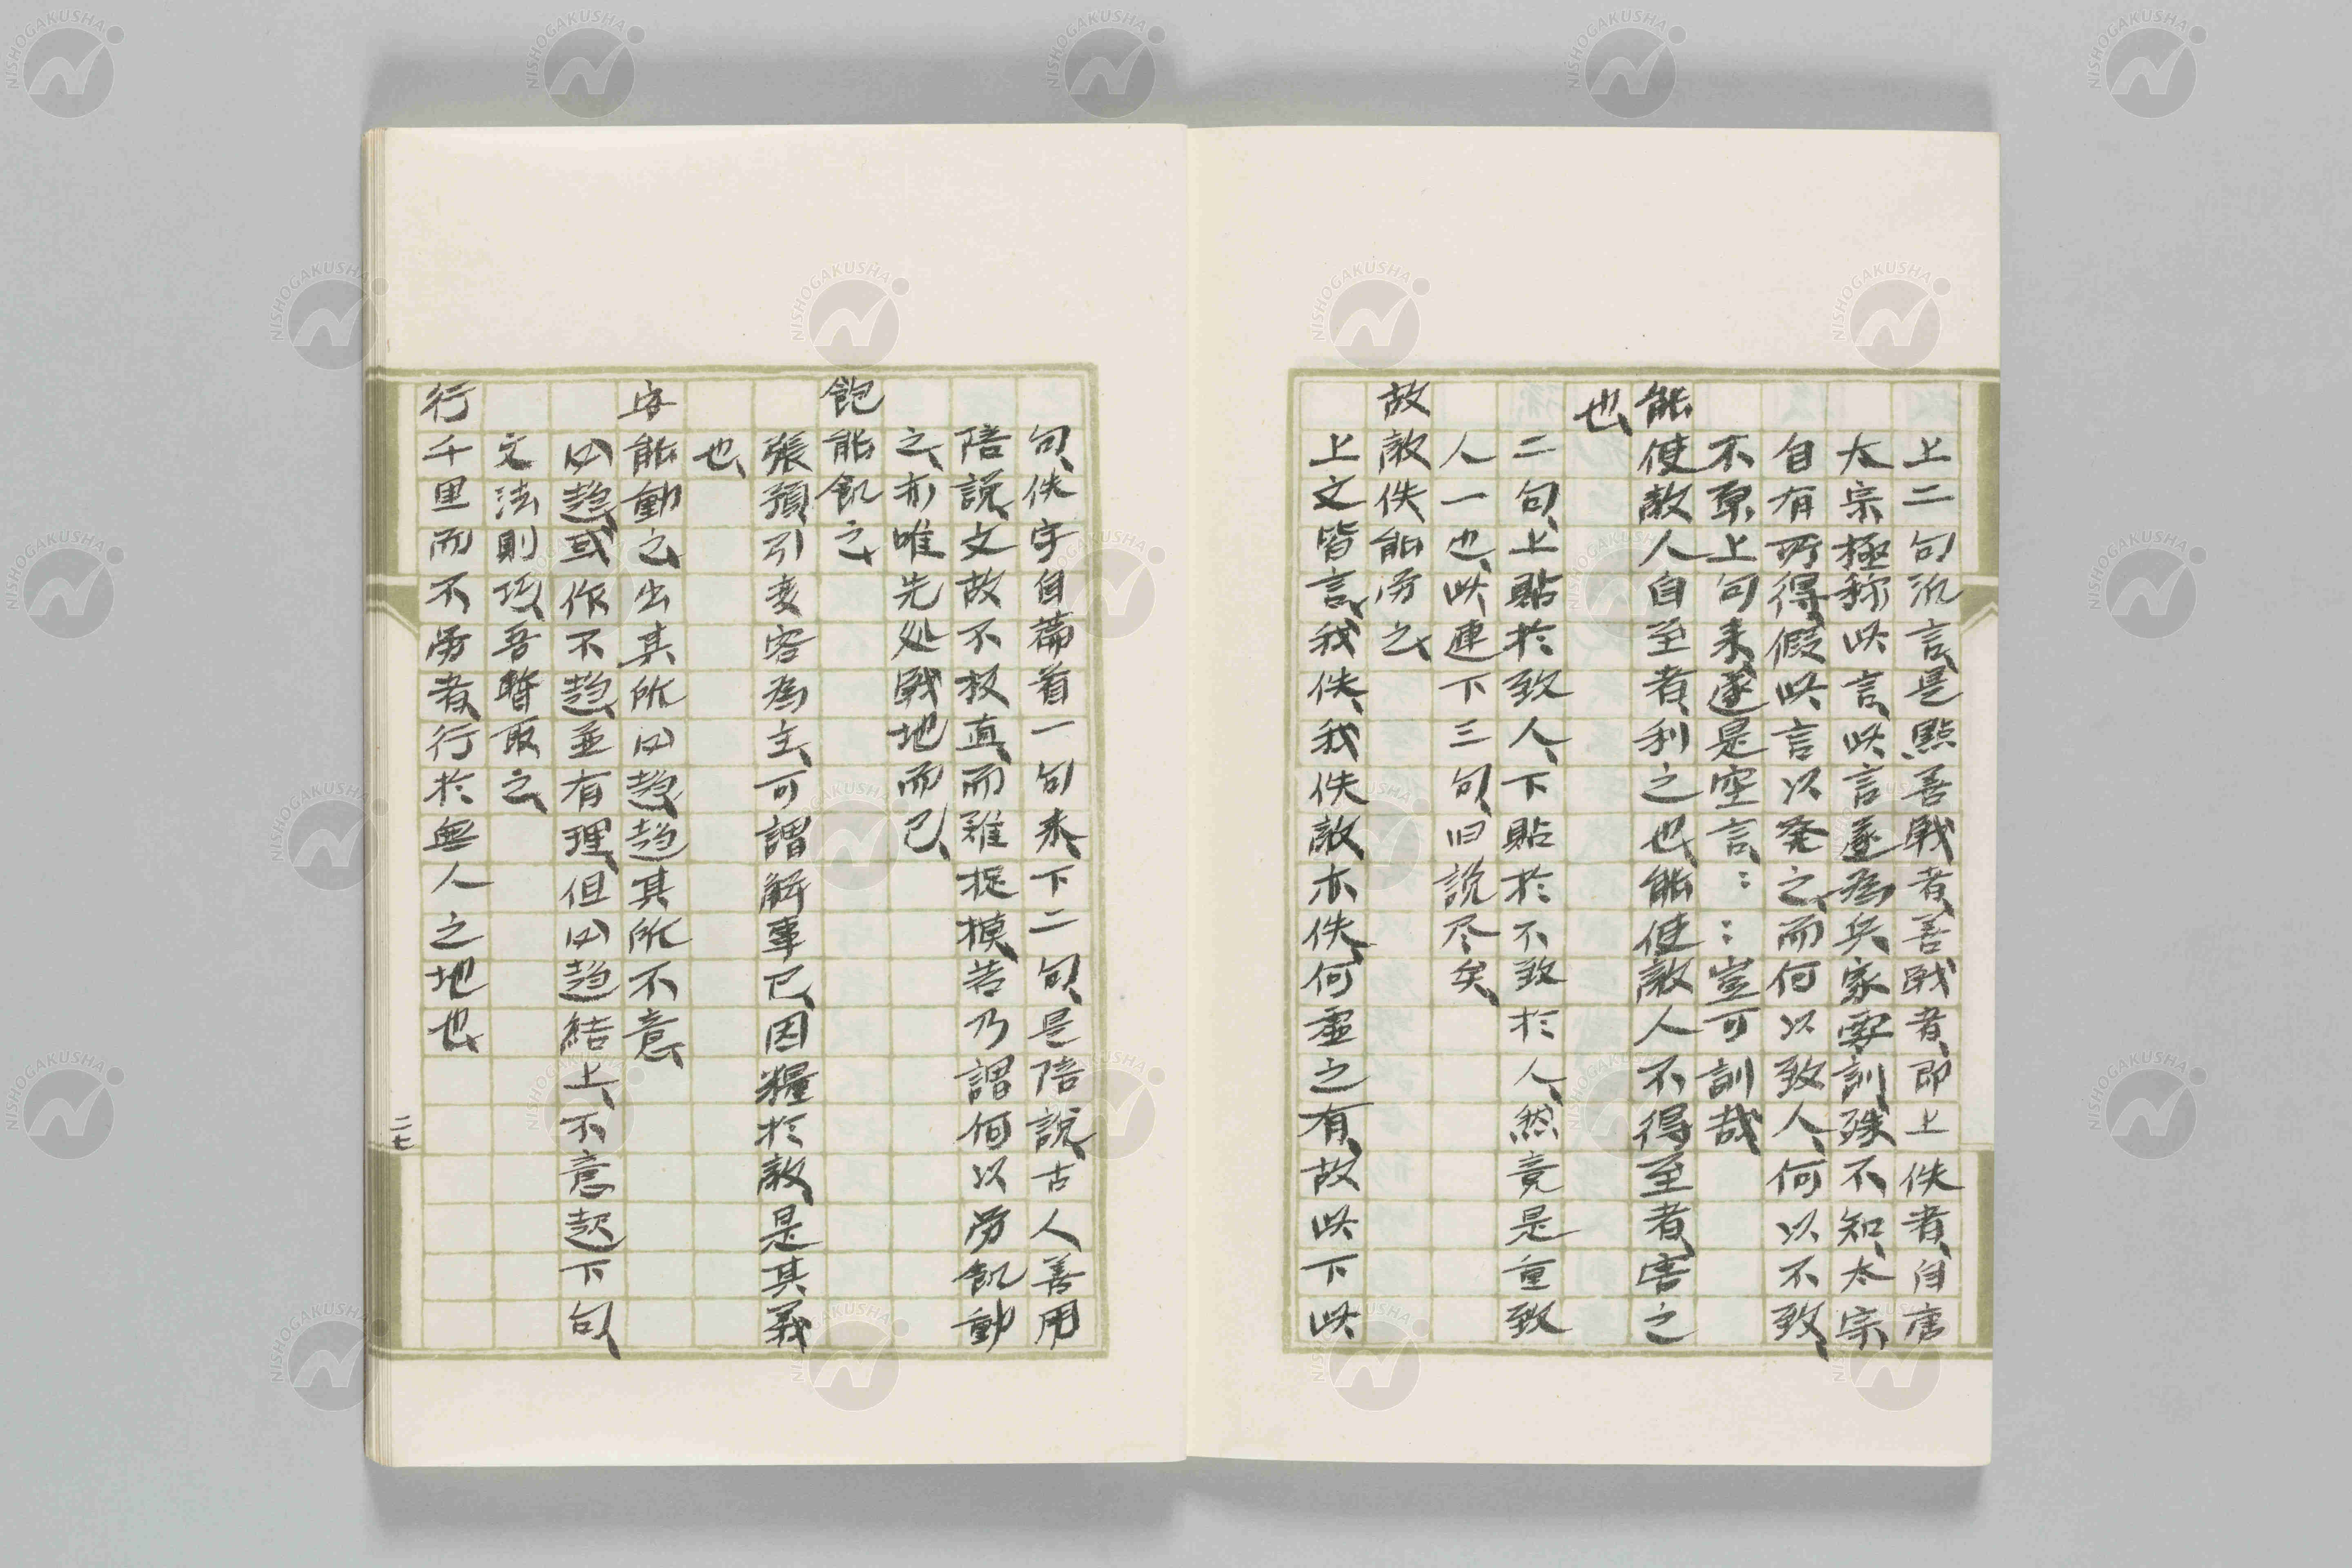 上二句汎言、是點善戰者、善戰者、即上佚者、自唐
太宗極称此言、此言遂為兵家要訓、殊不知、太宗
自有所得、假此言以発之、而何以致人、何以不致、
不原上句来、遂是空言、、、豈可訓哉
能使敵人自至者、利之也、能使敵人不得至者、害之
也、
二句、上貼於致人、下貼於不致於人、然竟是重致
人一也、此連下三句、旧説尽矣、
故敵佚能労之、
上文皆言、我佚、我佚敵亦佚、何虚之有、故此下此
句、佚字自篇首一句来、下二句、是陪説、古人善用
陪説、文故不板直、而難捉摸、若乃謂何以労飢動
之、亦唯先処戰地而已、
飽能飢之、
張預引変客為主、可謂解事已、因糧於敵、是其義
也、
安能動之、出其所必趨、趨其所不意、
必趨、或作不趨、並有理、但必趨結上、不意起下句、
文法則巧、吾暫取之、
行千里而不労者、行於無人之地也、
二七
NISHOGAKUSHA